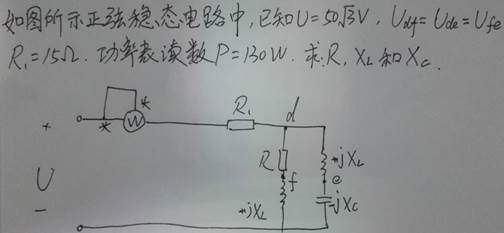 如图所示正弦稳态电路中,已知U=50√3V, Udf=Ude=Ufe
R₁=15Ω. 功率表读数P=130W. 求:R, XL 和 Xc.
* * W R₁ d
+
U
-
R
f
+jXL
+jXL
e
-jXc